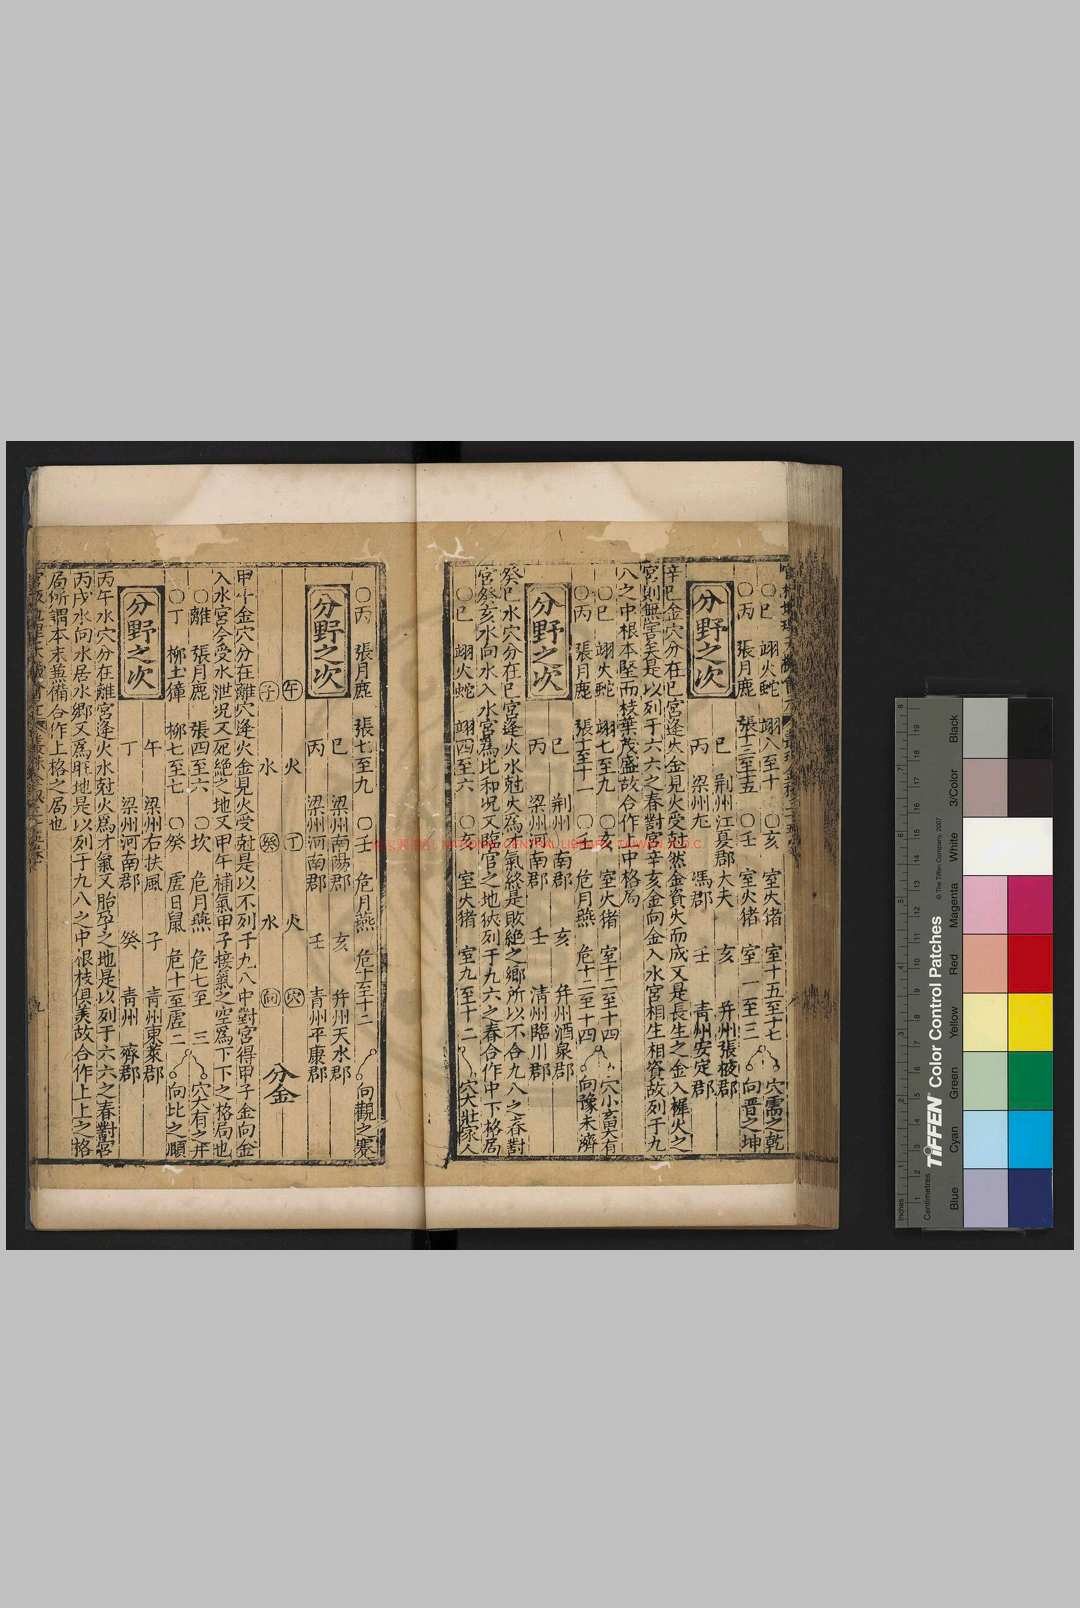 ○巳 翊火蛇 翊八至十 ○亥 室火猪 室十五至十七 穴需之乾
○丙 張月鹿 張十三至十五 ○壬 危月燕 室一至三 向晋之坤
分野之次
巳 荆州江夏郡大夫 亥 并州張掖郡
丙 梁州 馮郡 壬 青州安定郡
辛巳金穴分在巳宮逢火金見火受尅然金資火而成又是長生之金入墀火之
宮則無害矣是以列于六六之春對宮辛亥金向金入水宮相生相資故列于九
八之中根本堅而枝葉茂盛故合作上中格局
○巳 翊火蛇 翊七至九 ○亥 室火猪 室十二至十四 穴小畜大有
○丙 張月鹿 張十至十一 ○壬 危月燕 危十二至十四 向豫未濟
分野之次
巳 荆州南郡 亥 并州酒泉郡
丙 梁州河南郡 壬 清州臨川郡
癸巳水穴分在巳宮逢火水尅火為才氣終是敗絕之鄉所以不合九八之春對
宮癸亥水向水入水宮為比和况又臨官之地狹列于九六之春合作中下格局
○巳 翊火蛇 翊四至六 ○亥 室火猪 室九至十二 穴大壯家人
○丙 張月鹿 張七至九 ○壬 危月燕 危十至十二 向觀之蹇
分野之次
巳 梁州南陽郡 亥 并州天水郡
丙 梁州河南郡 壬 青州平康郡
午 火 丁 火 穴
子 水 癸 水 向 分金
甲午金穴分在離穴逢火金見火受尅是以不列于九八中對宮得甲子金向金
入水宮今受水泄况又死絕之地又甲午補氣甲子接氣之空為下下之格局也
○離 張月鹿 張四至六 ○坎 危月燕 危七至三 穴大有之井
○丁 柳土獐 柳七至七 ○癸 虛日鼠 危十一至虛二 向比之頤
分野之次
午 梁州石扶風 子 青州東萊郡
丁 梁州河南郡 癸 青州 齊郡
丙午水穴分在離宮逢火水尅火為才氣又胎孕之地是以列于六六之春對宮
丙戌水向水居水鄉又為旺地是以列于九八之中根枝俱美故合作上上之格
局所謂本末並備合作上格之局也
NATIONAL CENTRAL LIBRARY, TAIWAN, R.O.C.
Inches
Centimetres
TIFFEN Color Control Patches
© The Tiffen Company, 2007
Blue Cyan Green Yellow Red Magenta White 3/Color Black